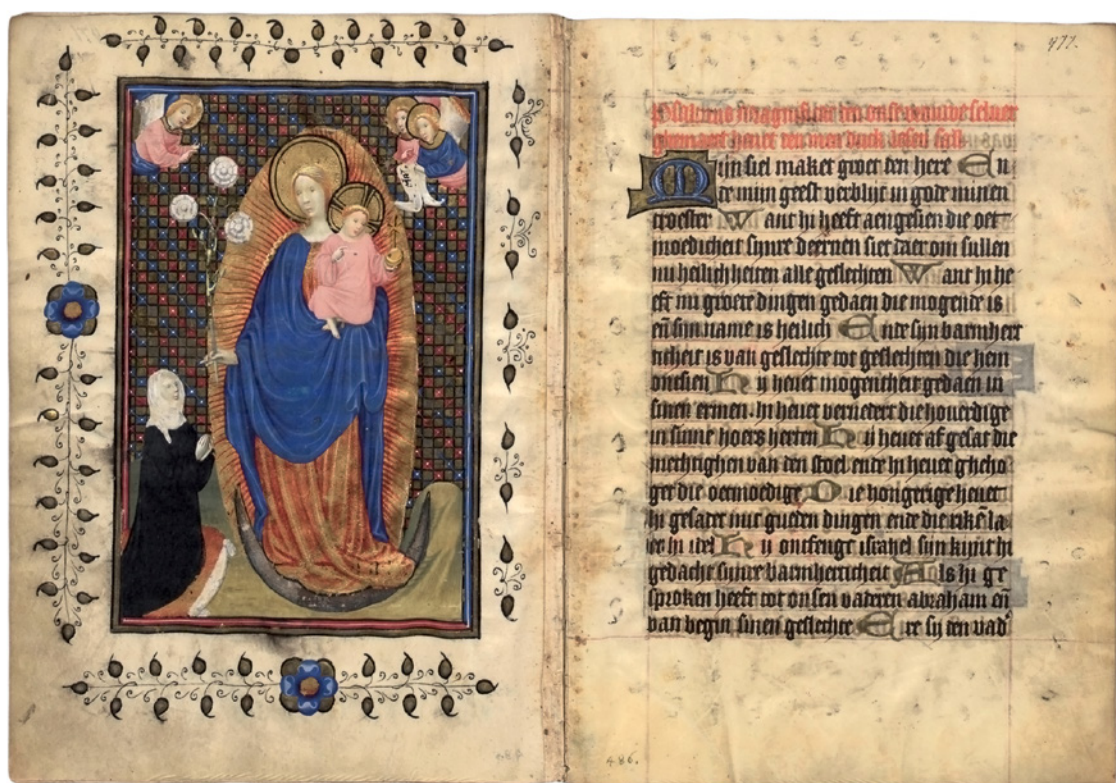 477.
magnificat
Mijn siel maket groet den here En
de mijn geest verblijt in gode minen
troester Want hi heeft aengesien die oet
moedicheit sijnre deernen siet daer om sullen
mi heilich heiten alle geslechten Want hi he
eft mi groete dingen gedaen die mogende is
en̄ sijn name is heilich Ende sijn barmhert
ticheit is van geslechte tot geslechten die hem
ontsien Hij hevet mogentheit gedaen in
sinen ermen. hi hevet vernedert die hoverdige
in sinne hoers herten Hij hevet af gesat die
mechtighen van den stoel ende hi hevet gheho
get die oetmoedige Die hongerige hevet
hi gesadet mit gueden dingen ende die rikē la
tet hi idel Hij ontfenget israhel sijn kijnt hi
gedacht sijnre barmherticheit Als hi ge
sproken heeft tot onsen vaderen abraham en̄
van begin sinen geslechte Ere sij den vad'
486.